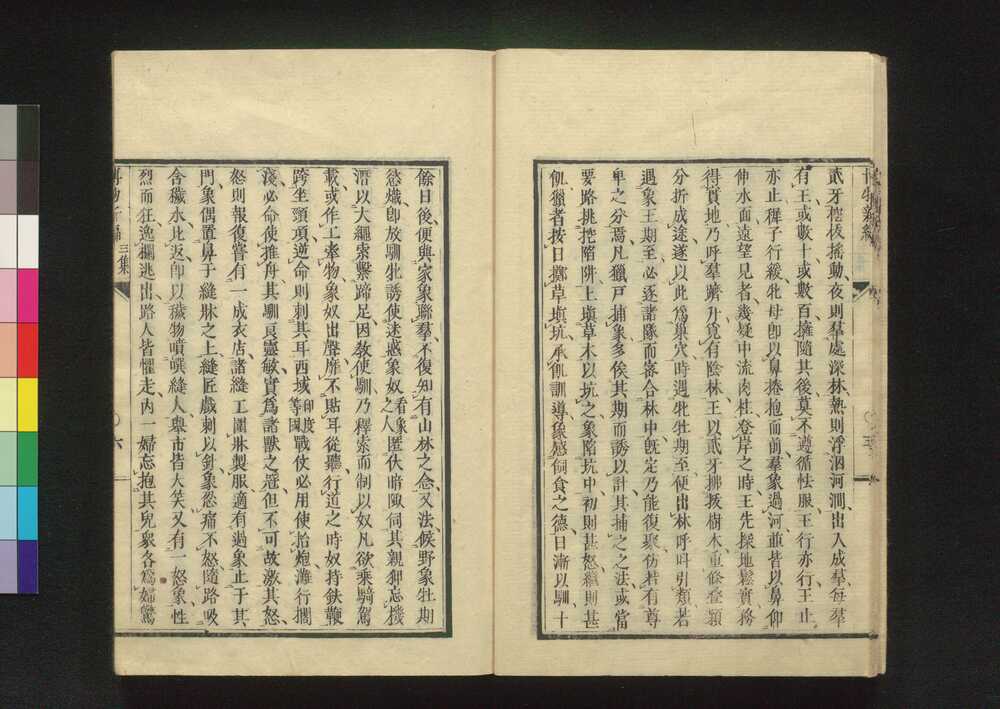 博物新編
貳牙檔拔搖動夜則羣處深林熱則浮泅河澗出入成羣每羣
有王或數十或數百擁隨其後莫不遵循怯服王行亦行王止
亦止穉子行緩牝母卽以鼻捲抱而前羣象過河並皆以鼻仰
伸水面遠望見者幾疑中流肉柱登岸之時王先探地鬆實務
得實地乃呼羣躋升覓有陰林王以貳牙拂拔樹木重餘疊纇
分折成途遂以此爲巢穴時遇牝牡期至便出林呼叫引類若
遇象王期至必逐諸隊而審合林中旣定乃能復聚彷若有尊
卑之分焉凡獵戸捕象多俟其期而誘以計其捕之之法或當
要路挑挖陷阱上塡草木以坑之象陷坑中初則甚怒繼則甚
飢獵者按日擲草塡坑承飢訓導象感飼食之德日漸以馴十
餘日後便與家象聯羣不復知有山林之念又法候野象牡期
慾熾卽放馴牝誘使迷惑象奴看象之人匿伏暗陬伺其親狎忘機
潛以大繩索繫蹄足因敎使馴乃釋索而制以奴凡欲乘騎駕
載或作工牽物象奴出聲靡不貼耳從聽行道之時奴持鈇鞭
跨坐頸項逆命則刺其耳西域印度等國戰仗必用使拾炮灘行擱
淺必命使推舟其馴良靈敏實爲諸獸之冠但不可故激其怒
怒則報復嘗有一成衣店諸縫工圍牀製服適有過象止于其
門象偶置鼻于縫牀之上縫匠戲刺以針象忿痛不怒隨路吸
含穢水此返卽以穢物噴縫人擧市皆大笑又有一怒象性
烈而狂逸攔逃出路人皆懼走內一婦忘抱其兒衆各爲婦驚
博物新編 三集
六